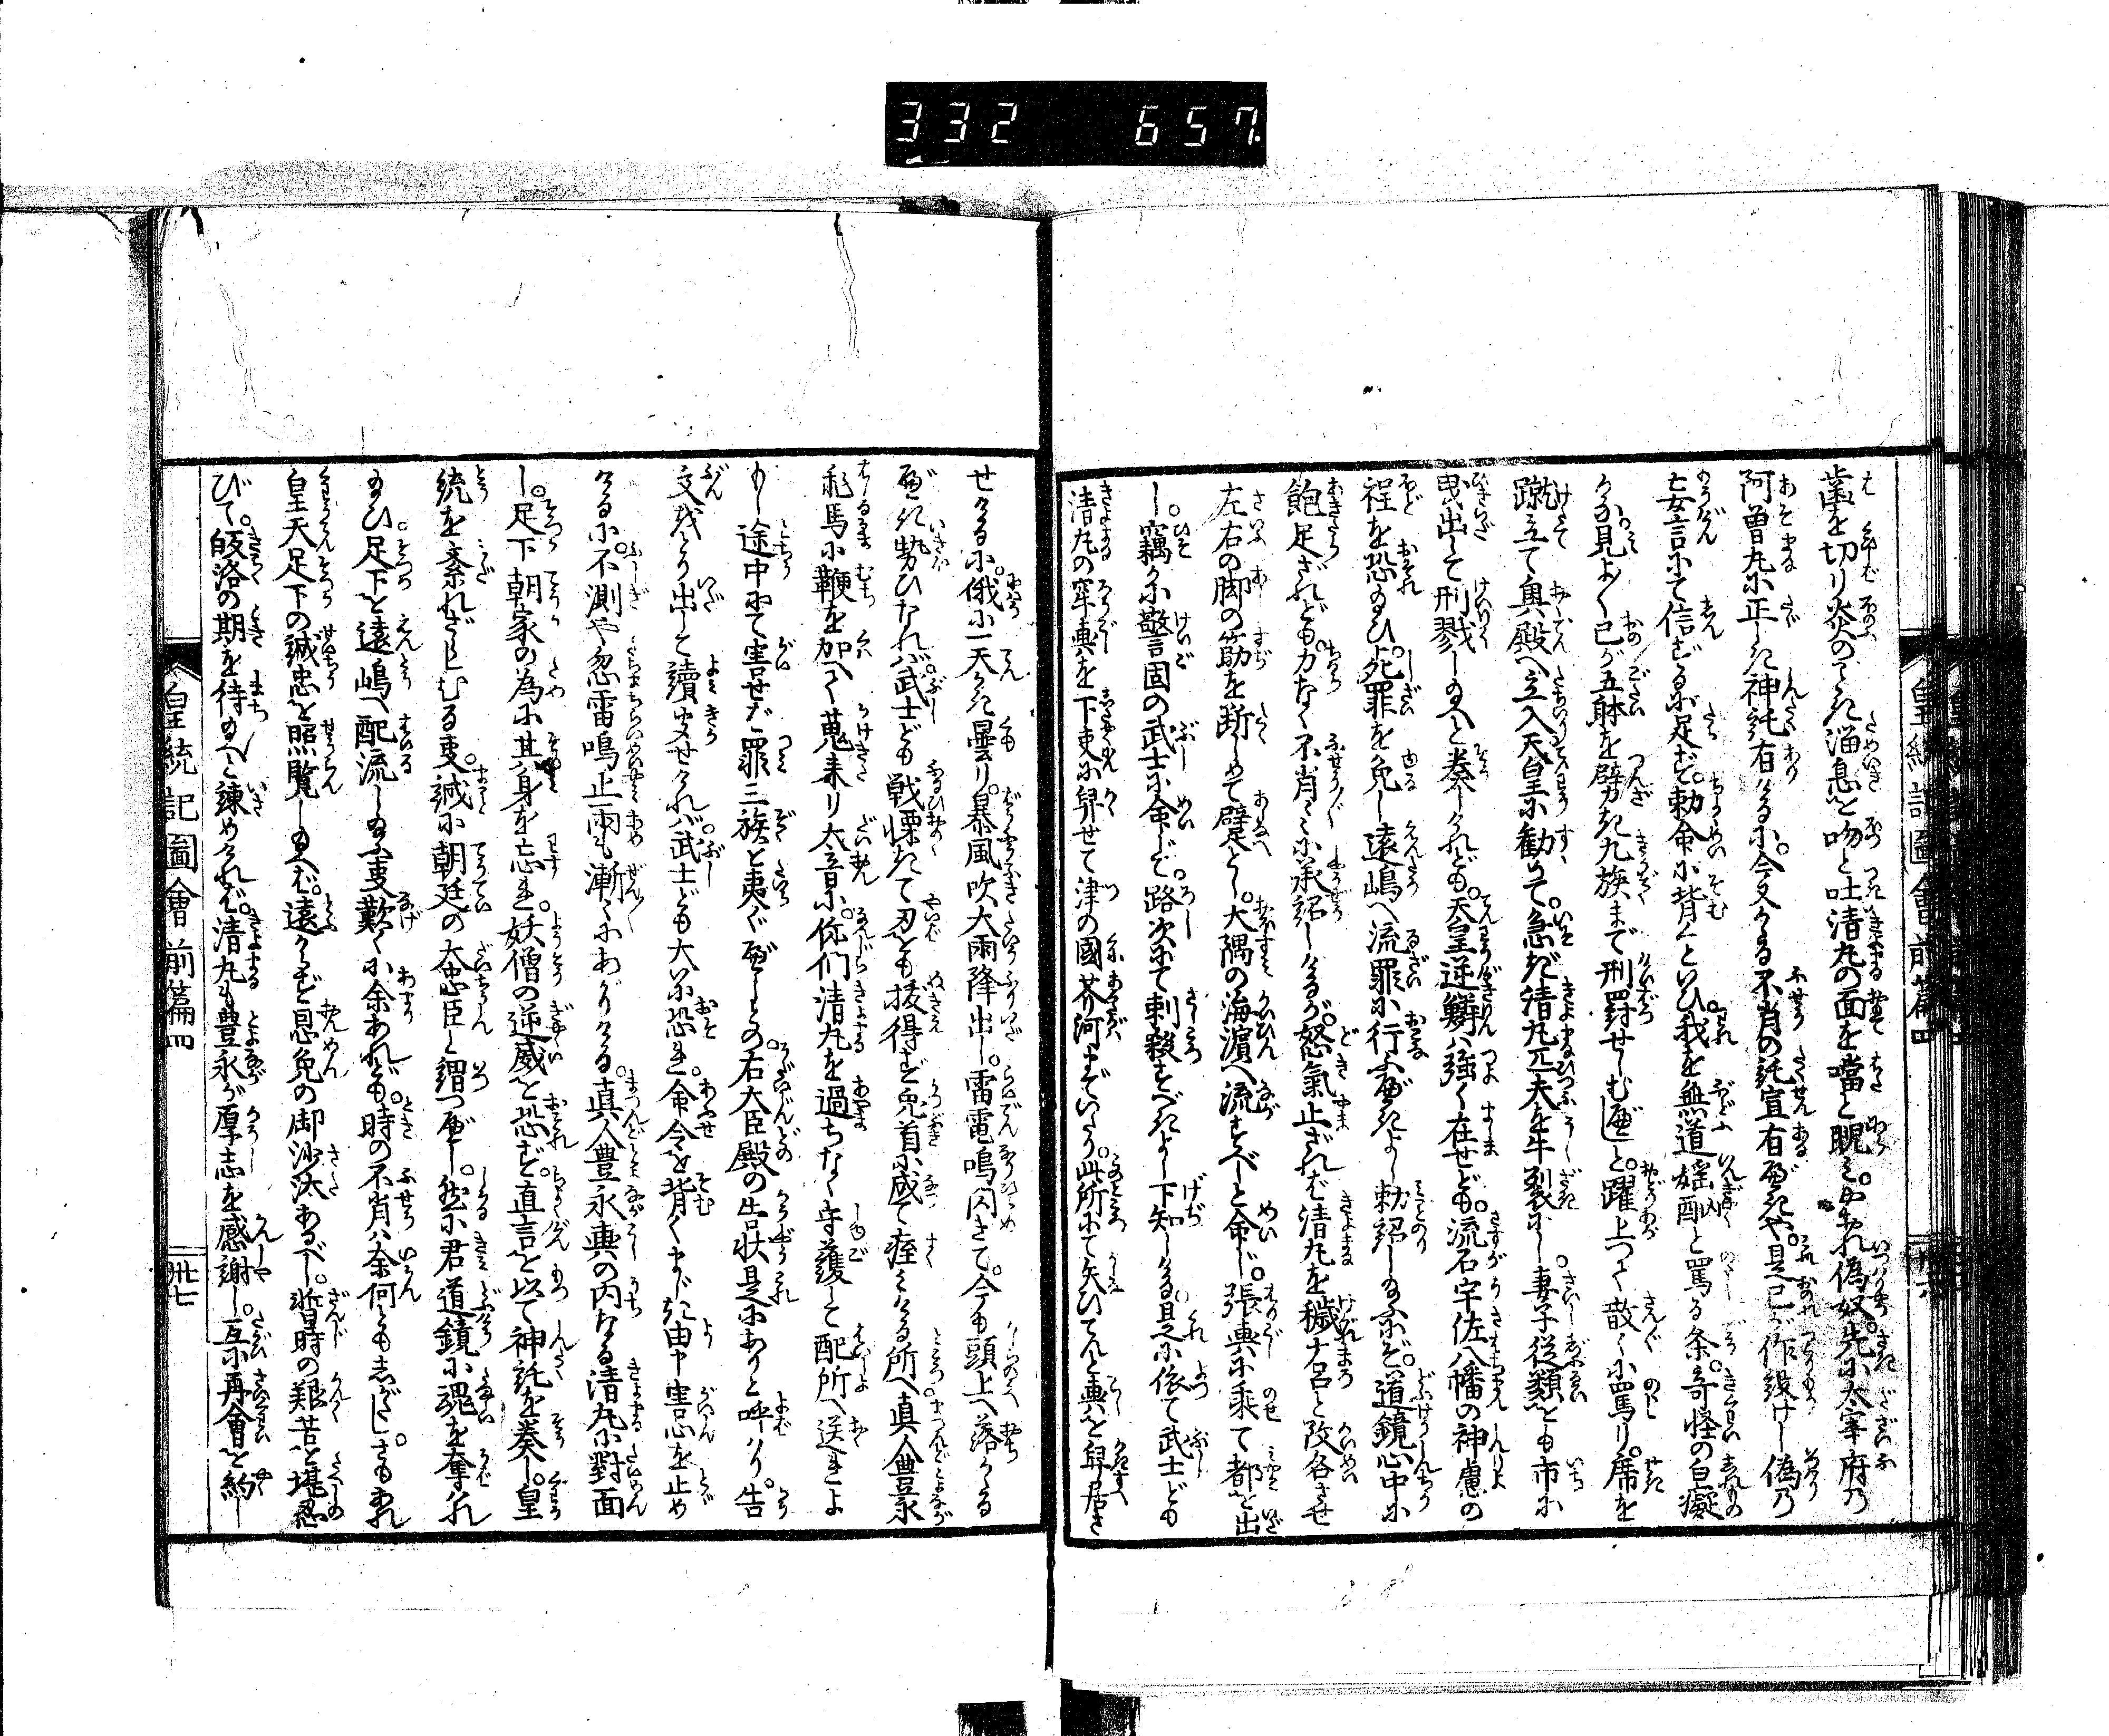 332 657
皇統記圖會前篇四
歯を切り炎のごとき溜息を吻と吐清丸の面を噹と睨み。やをれ偽奴。先に太宰府の
阿曽丸に正しき神託有けるに。今又かゝる不肖の託宣有べきや。是己が作り設けし偽の
妄言にて信ずるに足ず。勅命に背くといひ我を無道婬酗と罵る条。奇怪の白癡
かな。見よ〱己が五躰を劈き九族まで刑罸せしむべしと。躍上つて散〱に罵り。席を
蹴立て奥殿へ立入天皇に勧めて。急ぎ清丸匹夫を牛裂にし。妻子従類とも市に
曳出して刑戮し給へと奏しけれども。天皇逆鱗は強く在せども。流石宇佐八幡の神慮の
程を恐給ひ。死罪を免し遠嶋へ流罪に行ふべきよし勅詔し給ふにぞ。道鏡心中に
飽足ざれども。力なく不肖〱に承詔しけるが。怒氣止ざれば清丸を穢丸と改名させ
左右の脚の筋を断しめて躄とし。大隅の海濵へ流すべしと命じ。張輿に乗て都を出
し。竊に警固の武士に命じ。路次にて刺殺すべきよし下知しける。是に依て武士ども
清丸の牢輿を下吏に舁せて津の國芥河までいたり。此所にて失ひてんと輿を舁居さ
せけるに。俄に一天かき曇り。暴風吹大雨降出し。雷電鳴閃きて。今も頭上へ落かゝる
べき勢ひなれば。武士ども戦慄きて刃をも抜得ず兎首に成て痓みける所へ真人豊永
彪馬に鞭を加へて蒐来り大音に。你们清丸を過ちなく守護して配所へ送れよ
もし途中にて害せば罪三族を夷ぐべしとの。右大臣殿の告状是にありと呼はり。告
文我より出して讀聞せければ。武士ども大いに恐れ。命令を背くまじき由申害心を止め
けるに。不測や忽雷鳴止雨も漸〱にあがりける。真人豊永輿の内なる清丸に對面
し。足下朝家の為に其身を忘れ。妖僧の逆威を恐ず。直言を以て神託を奏し。皇
統を紊れざらしむる事。誠に朝廷の大忠臣と謂つべし。然に君道鏡に魂を奪れ
給ひ。足下を遠嶋へ配流し給ふ事歎くに余あれども。時の不肖は奈何ともしがたし。さもあれ
皇天足下の誠忠を照覧し給へば。遠からず恩免の御沙汰あるべし。暫時の艱苦を堪忍
びて。皈洛の期を待給へと諫めければ。清丸も豊永が厚志を感謝し。互に再會を約し
皇統記圖會前篇四
卅七